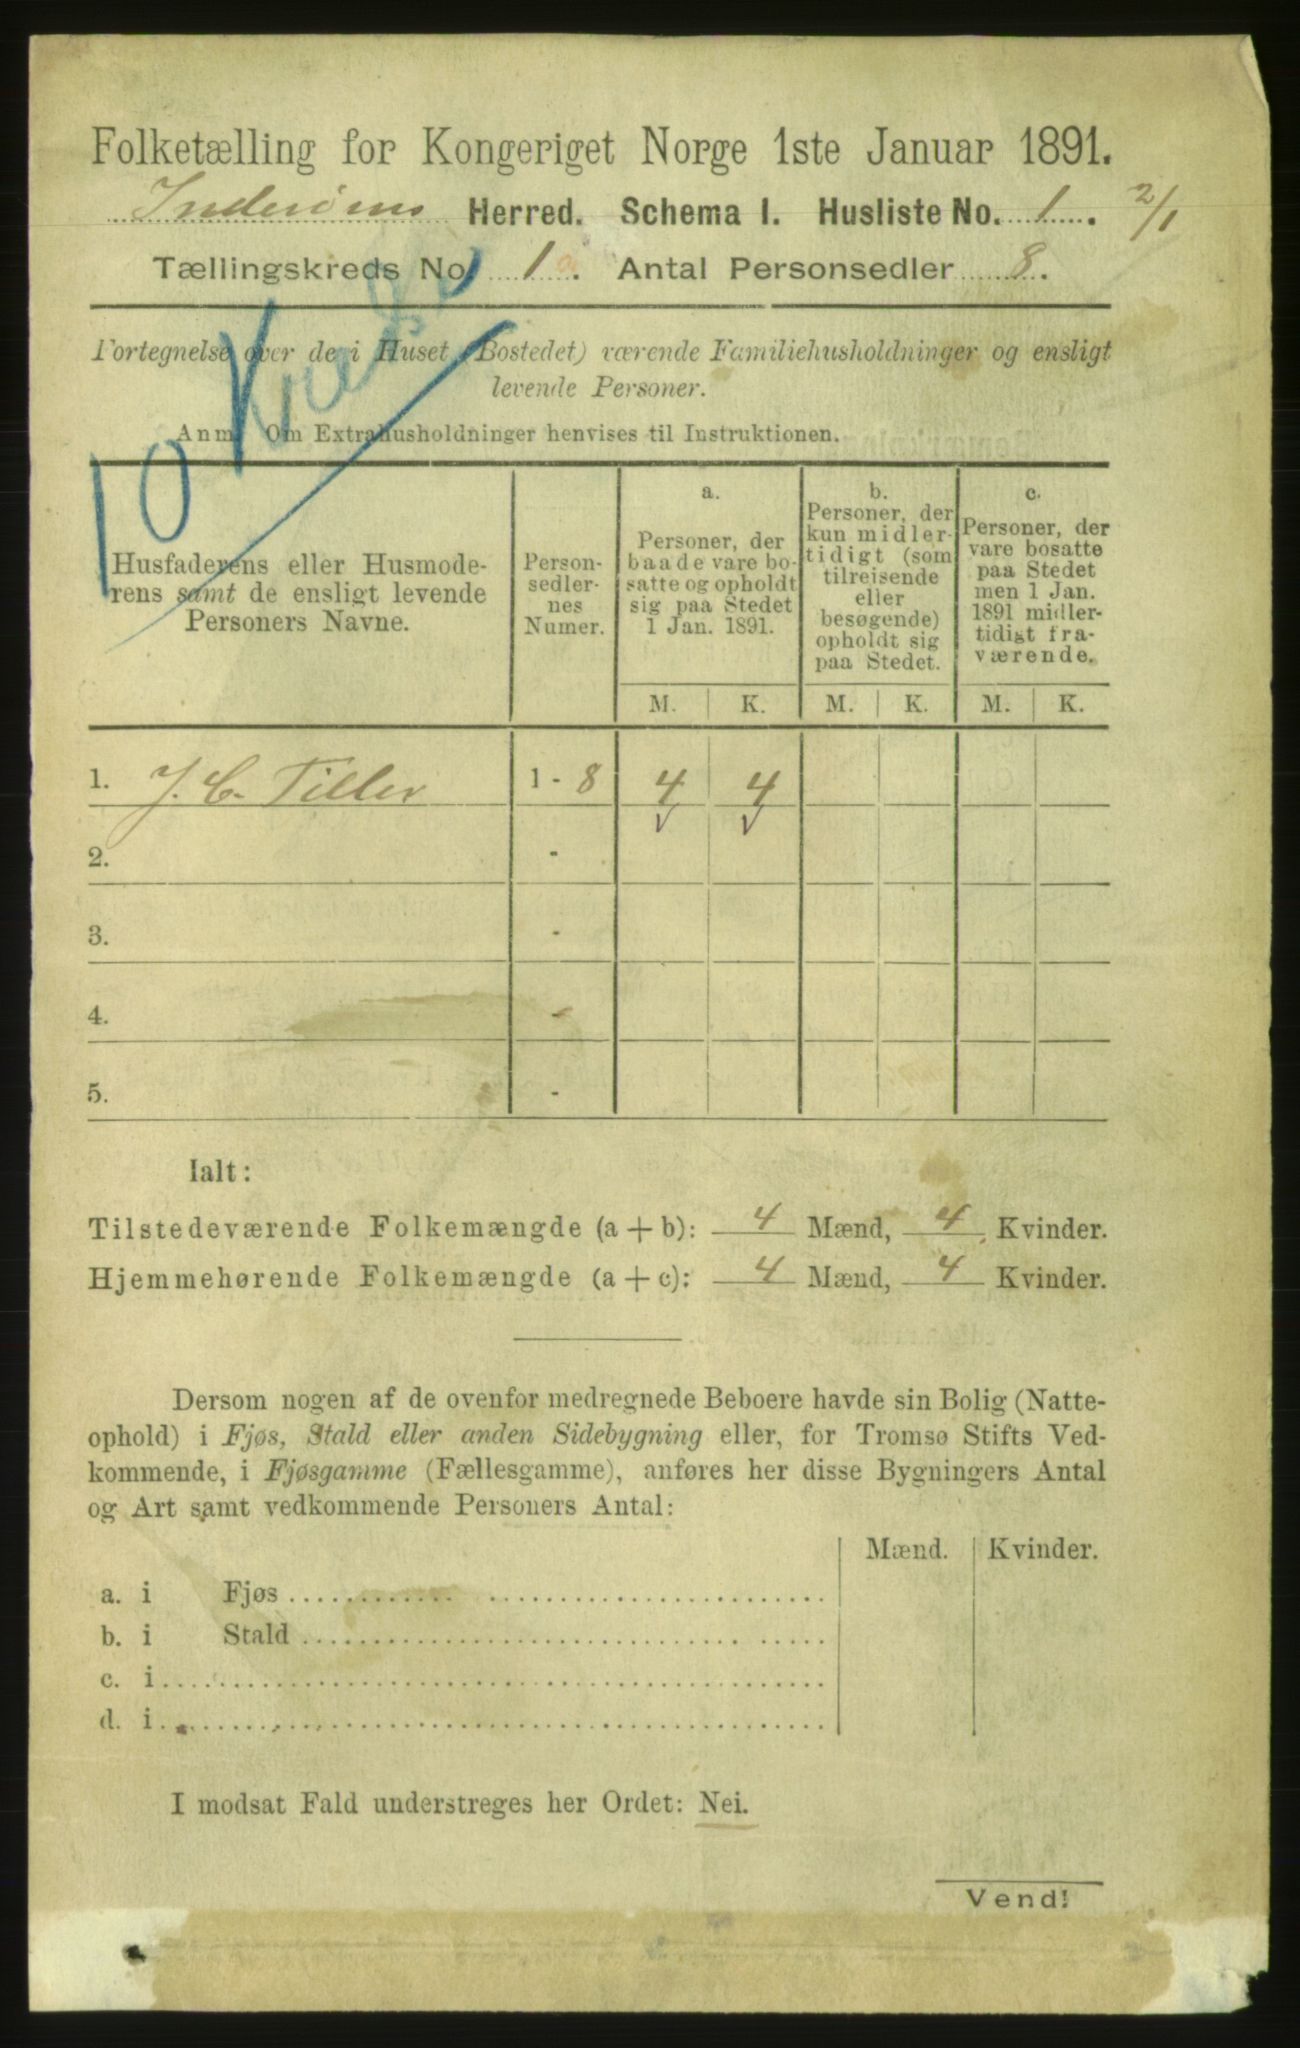 Folketælling for Kongeriget Norge 1ste Januar 1891.
Inderøens Herred. Schema I. Husliste No. 1. 2/1
Tællingskreds No. 1. Antal Personsedler 8.
Fortegnelse over de i Huset (Bostedet) værende Familiehusholdninger og ensligt
levende Personer.
Anm. Om Extrahusholdninger henvises til Instruktionen.
10
Husfaderens eller Husmode-
rens samt de ensligt levende
Personers Navne.
Person-
sedler-
nes
Numer.
a.
Personer, der
baade vare bo-
satte og opholdt
sig paa Stedet
1 Jan. 1891.
b.
Personer, der
kun midler-
tidigt (som
tilreisende
eller
besøgende)
opholdt sig
paa Stedet.
c.
Personer, der
vare bosatte
paa Stedet
men 1 Jan.
1891 midler-
tidigt fra-
værende.
M. K. M. K. M. K.
1. J. C. Tiller 1 - 8 4 4
2. -
3. -
4. -
5. -
Ialt:
Tilstedeværende Folkemængde (a + b): 4 Mænd, 4 Kvinder.
Hjemmehørende Folkemængde (a + c): 4 Mænd, 4 Kvinder.
Dersom nogen af de ovenfor medregnede Beboere havde sin Bolig (Natte-
ophold) i Fjøs, Stald eller anden Sidebygning eller, for Tromsø Stifts Ved-
kommende, i Fjøsgamme (Fællesgamme), anføres her disse Bygningers Antal
og Art samt vedkommende Personers Antal:
Mænd. Kvinder.
a. i Fjøs
b. i Stald
c. i
d. i
I modsat Fald understreges her Ordet: Nei.
Vend!